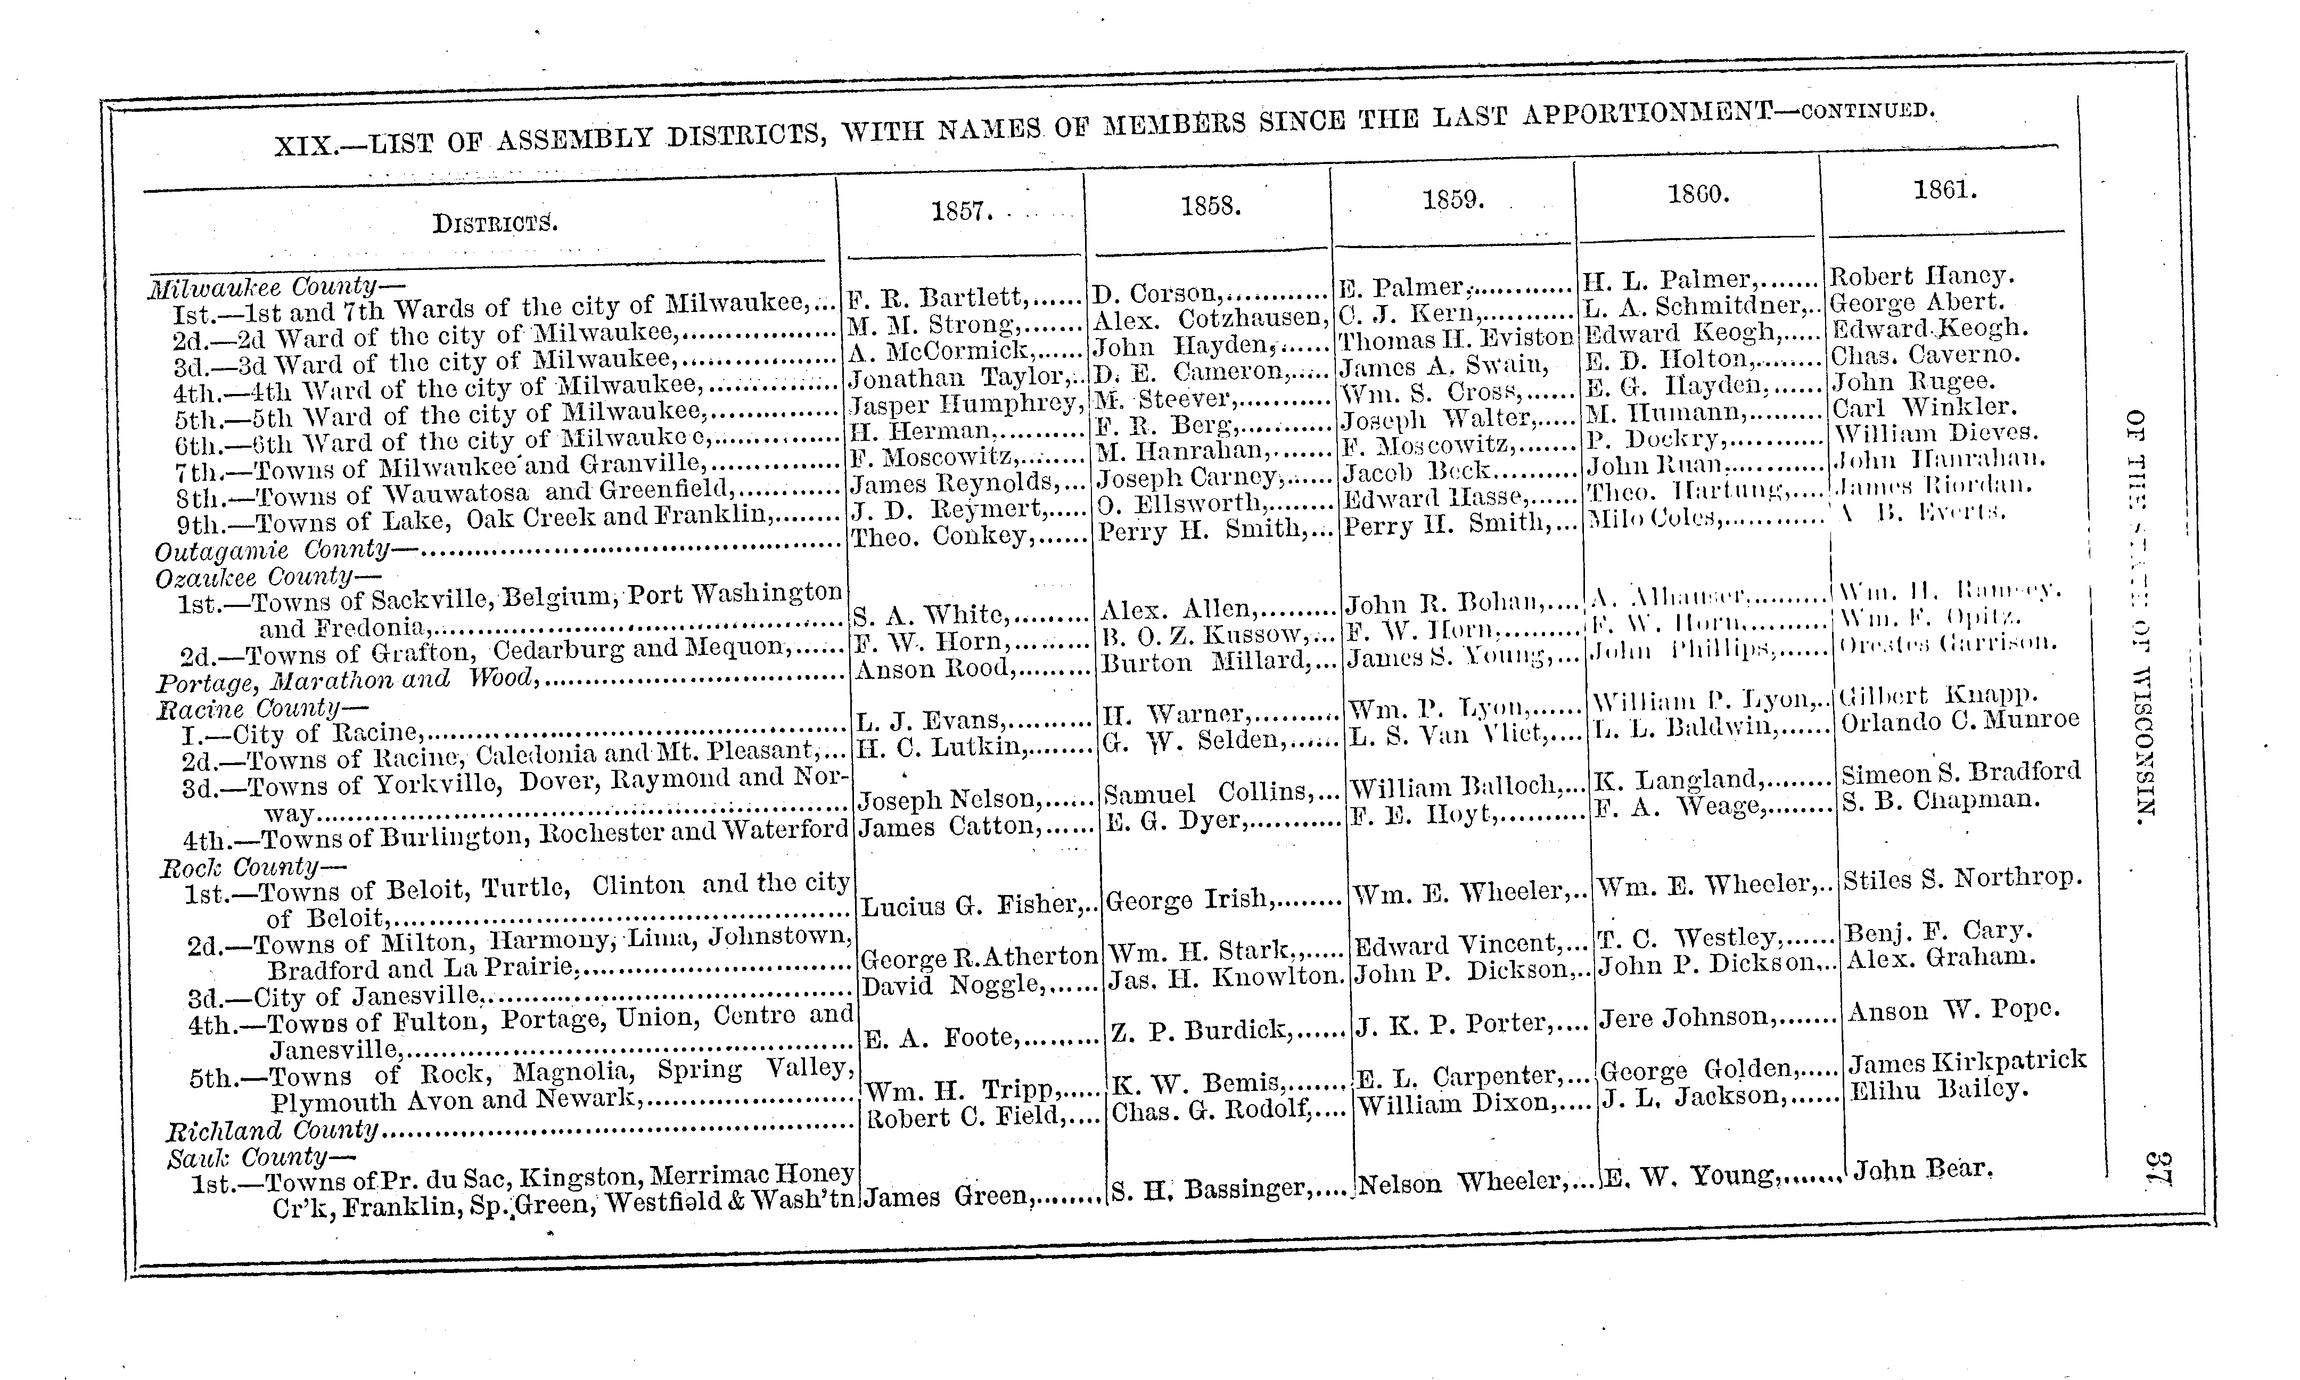 XIX.—LIST OF ASSEMBLY DISTRICTS, WITH NAMES OF MEMBERS SINCE THE LAST APPORTIONMENT—CONTINUED.
DISTRICTS. 1857. 1858. 1859. 1860. 1861.
Milwaukee County—
1st.—1st and 7th Wards of the city of Milwaukee,... F. R. Bartlett,...... D. Corson,............ E. Palmer,............ H. L. Palmer,....... Robert Haney.
2d.—2d Ward of the city of Milwaukee,.................. M. M. Strong,....... Alex. Cotzhausen, C. J. Kern,........... L. A. Schmitdner,.. George Abert.
3d.—3d Ward of the city of Milwaukee,.................. A. McCormick,...... John Hayden,...... Thomas H. Eviston Edward Keogh,..... Edward Keogh.
4th.—4th Ward of the city of Milwaukee,............... Jonathan Taylor,.. D. E. Cameron,..... James A. Swain, E. D. Holton,........ Chas. Caverno.
5th.—5th Ward of the city of Milwaukee,............... Jasper Humphrey, M. Steever,........... Wm. S. Cross,...... E. G. Hayden,...... John Rugee.
6th.—6th Ward of the city of Milwaukee,.............. H. Herman,.......... F. R. Berg,........... Joseph Walter,..... M. Humann,......... Carl Winkler.
7th.—Towns of Milwaukee and Granville,............... F. Moscowitz,....... M. Hanrahan,....... F. Moscowitz,....... P. Dockry,........... William Dieves.
8th.—Towns of Wauwatosa and Greenfield,............ James Reynolds,... Joseph Carney,..... Jacob Beck.......... John Ruan,........... John Hanrahan.
9th.—Towns of Lake, Oak Creek and Franklin,........ J. D. Reymert,..... O. Ellsworth,........ Edward Hasse,...... Theo. Hartung,.... James Riordan.
Outagamie Connty—................................................ Theo. Conkey,...... Perry H. Smith,... Perry H. Smith,... Milo Coles,........... A B. Everts.
Ozaukee County—
1st.—Towns of Sackville, Belgium, Port Washington
and Fredonia,............................................... S. A. White,......... Alex. Allen,......... John R. Bohan,.... A. Alhauser,......... Wm. H. Ramsey.
2d.—Towns of Grafton, Cedarburg and Mequon,...... F. W. Horn,......... B. O. Z. Kussow,... F. W. Horn,......... F. W. Horn,......... Wm. F. Opitz.
Portage, Marathon and Wood,................................... Anson Rood,......... Burton Millard,... James S. Young,... John Phillips,...... Orestes Garrison.
Racine County—
I.—City of Racine,................................................ L. J. Evans,.......... H. Warner,.......... Wm. P. Lyon,...... William P. Lyon,.. Gilbert Knapp.
2d.—Towns of Racine, Caledonia and Mt. Pleasant,... H. C. Lutkin,........ G. W. Selden,...... L. S. Van Vliet,.... L. L. Baldwin,...... Orlando C. Munroe
3d.—Towns of Yorkville, Dover, Raymond and Nor-
way............................................................. Joseph Nelson,...... Samuel Collins,... William Balloch,... K. Langland,........ Simeon S. Bradford
4th.—Towns of Burlington, Rochester and Waterford James Catton,...... E. G. Dyer,........... F. E. Hoyt,.......... F. A. Weage,........ S. B. Chapman.
Rock County—
1st.—Towns of Beloit, Turtle, Clinton and the city
of Beloit,..................................................... Lucius G. Fisher,.. George Irish,........ Wm. E. Wheeler,.. Wm. E. Wheeler,.. Stiles S. Northrop.
2d.—Towns of Milton, Harmony, Lima, Johnstown,
Bradford and La Prairie,............................... George R. Atherton Wm. H. Stark,,..... Edward Vincent,... T. C. Westley,...... Benj. F. Cary.
3d.—City of Janesville,.......................................... David Noggle,...... Jas. H. Knowlton. John P. Dickson,.. John P. Dickson,.. Alex. Graham.
4th.—Towns of Fulton, Portage, Union, Centre and
Janesville,................................................... E. A. Foote,......... Z. P. Burdick,...... J. K. P. Porter,.... Jere Johnson,....... Anson W. Pope.
5th.—Towns of Rock, Magnolia, Spring Valley,
Plymouth Avon and Newark,........................ Wm. H. Tripp,..... K. W. Bemis,....... E. L. Carpenter,... George Golden,..... James Kirkpatrick
Richland County...................................................... Robert C. Field,.... Chas. G. Rodolf,.... William Dixon,.... J. L. Jackson,...... Elihu Bailey.
Sauk County—
1st.—Towns of Pr. du Sac, Kingston, Merrimac Honey
Cr'k, Franklin, Sp. Green, Westfield & Wash'tn James Green,........ S. H. Bassinger,.... Nelson Wheeler,... E. W. Young,....... John Bear.
OF THE STATE OF WISCONSIN.
37